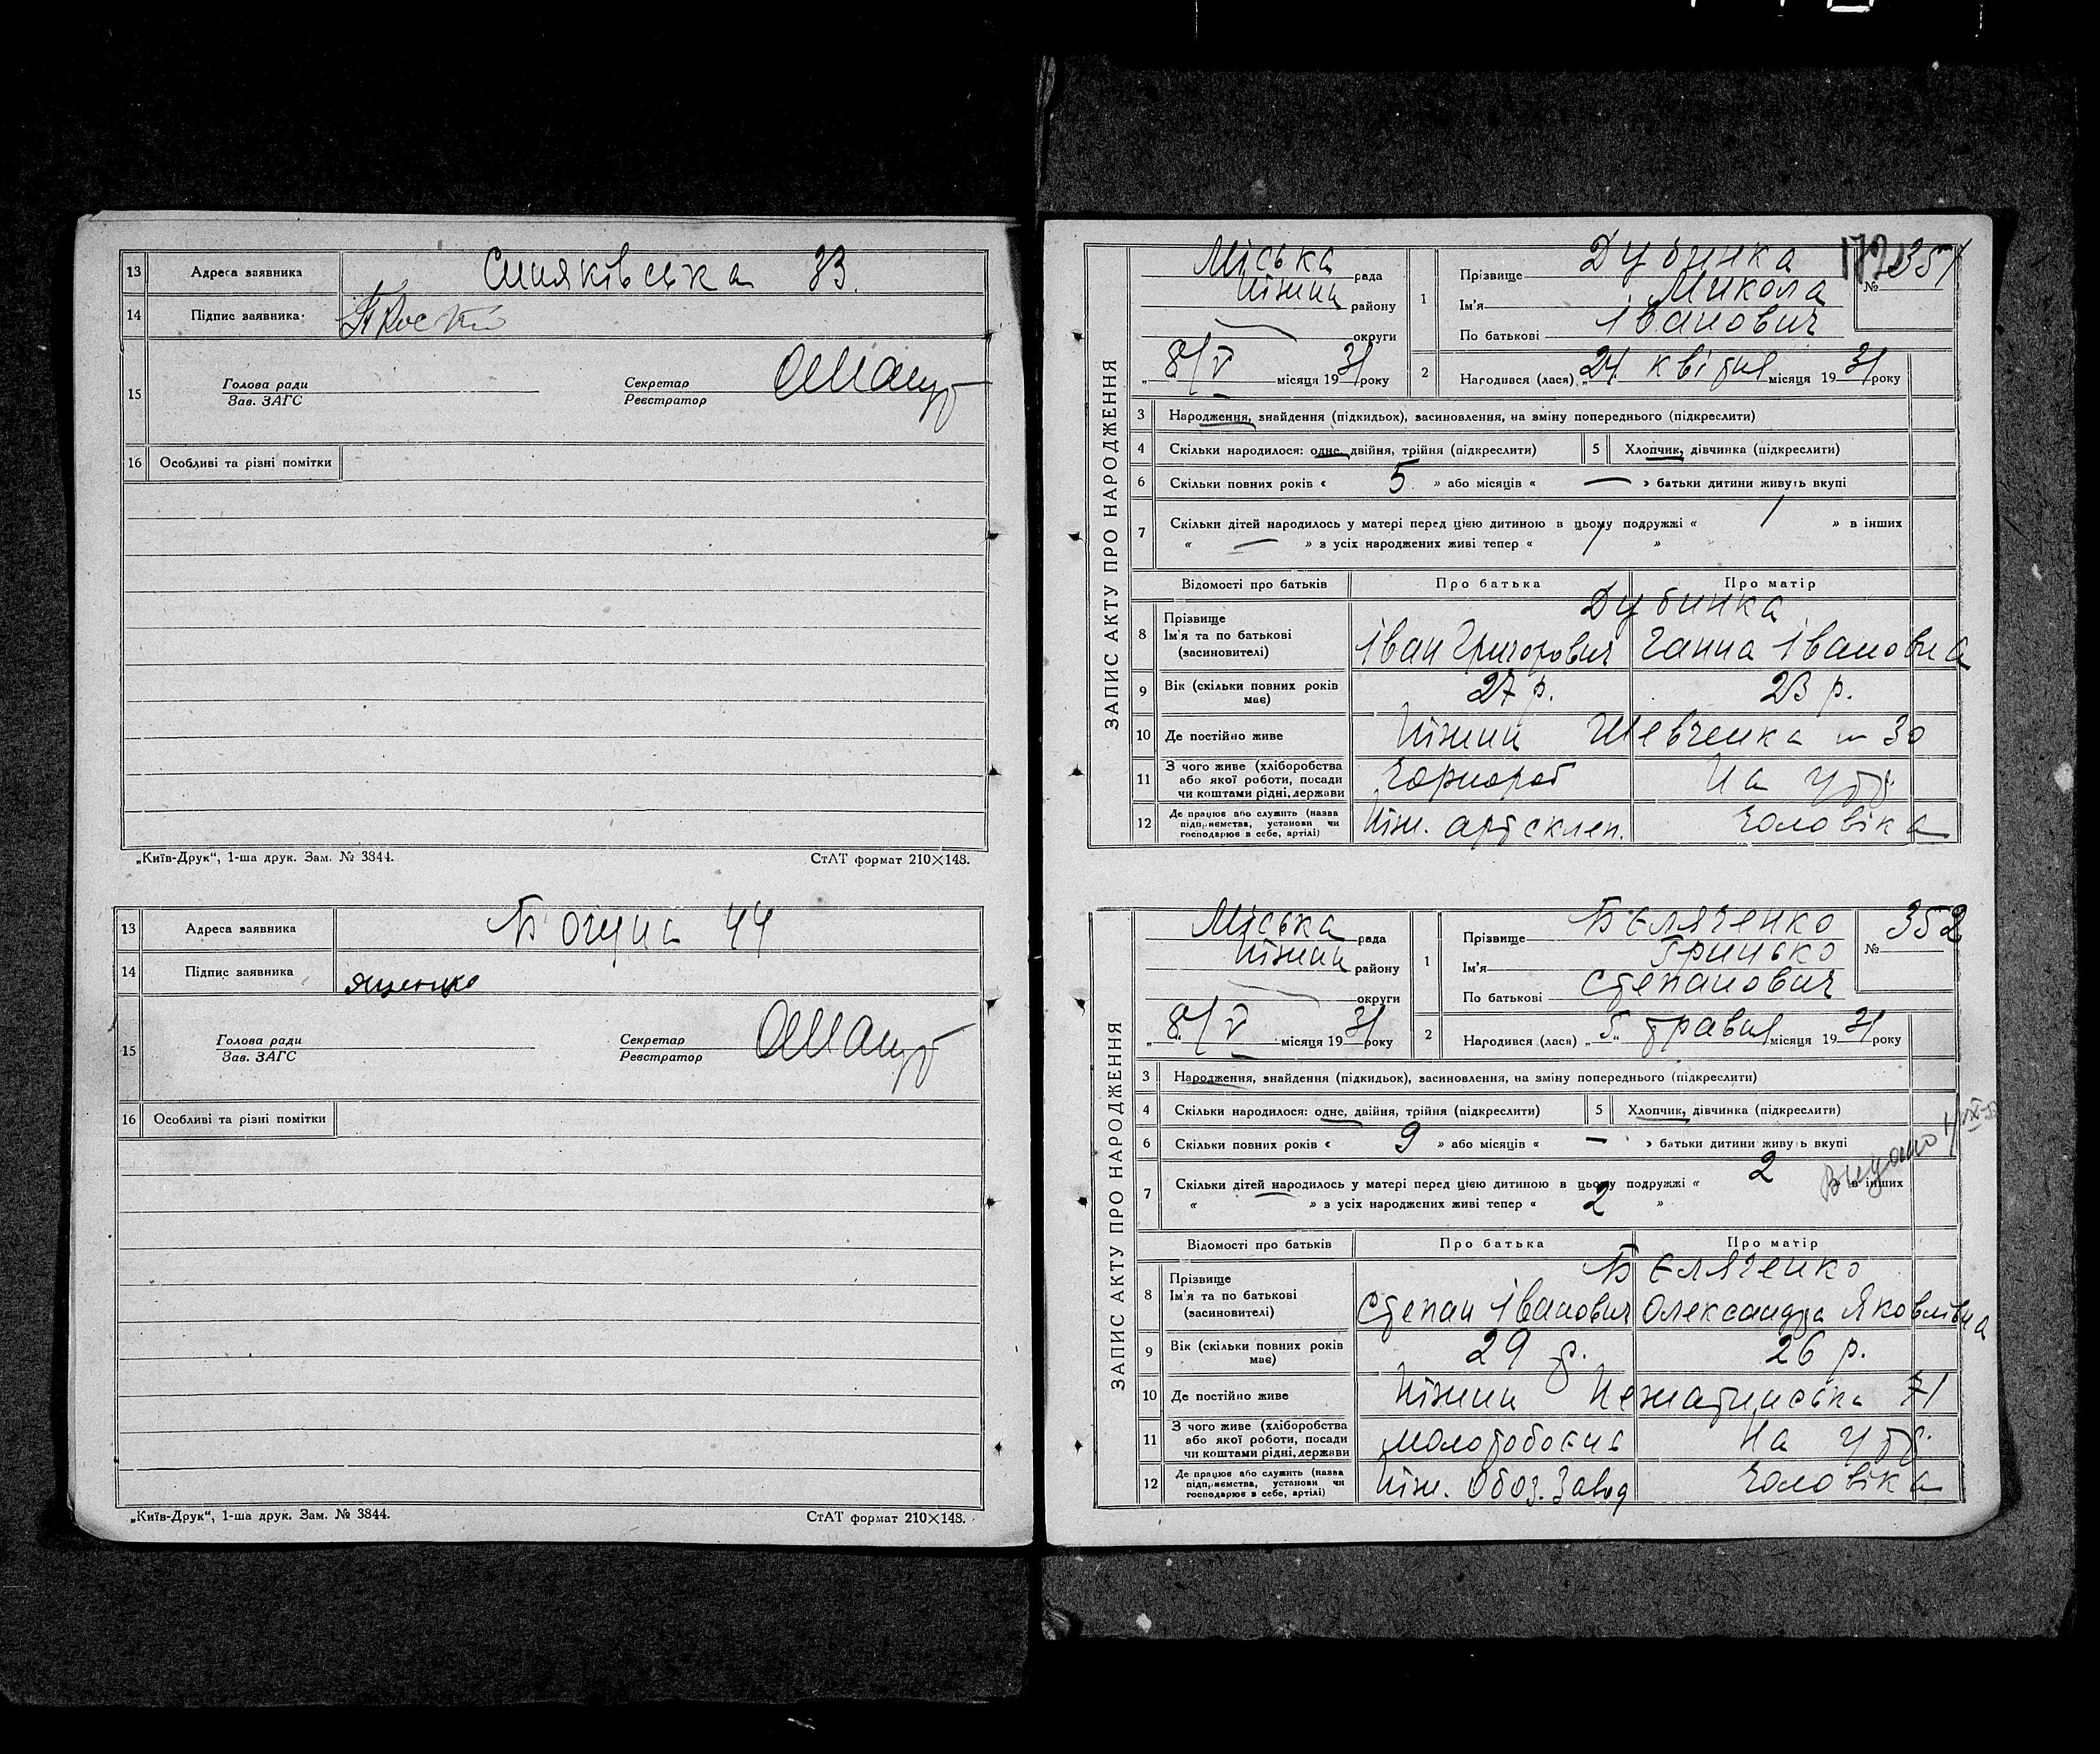 13 Адреса заявника Синяківська 33.
14 Підпис заявника
15 Голова ради
Зав. ЗАГС
Секретар
Реєстратор
16 Особливі та різні помітки
„Київ-Друк“, 1-ша друк. Зам. № 3844. СтАТ формат 210×148.
13 Адреса заявника Богуна 44
14 Підпис заявника Ященко
15 Голова ради
Зав. ЗАГС
Секретар
Реєстратор
16 Особливі та різні помітки
„Київ-Друк“, 1-ша друк. Зам. № 3844. СтАТ формат 210×148.
ЗАПИС АКТУ ПРО НАРОДЖЕННЯ
Міська рада
Ніжин району
округи
„8/V місяця 1931 року
1 Прізвище Дубинка
Ім'я Микола
По батькові Іванович
172
№ 351
2 Народився (лася) „24 квітня місяця 1931 року
3 Народження, знайдення (підкидьок), засиновлення, на зміну попереднього (підкреслити)
4 Скільки народилося: одне, двійня, трійня (підкреслити) 5 Хлопчик, дівчинка (підкреслити)
6 Скільки повних років « 5 » або місяців « — » батьки дитини живуть вкупі
7 Скільки дітей народилось у матері перед цією дитиною в цьому подружжі « 1 » в інших
« — » з усіх народжених живі тепер « 1 »
Відомості про батьків Про батька Про матір
Дубинка
8 Прізвище
Ім'я та по батькові
(засиновителі)
Іван Григорович Ганна Івановна
9 Вік (скільки повних років має) 27 р. 23 р.
10 Де постійно живе Ніжин Шевченка № 30
11 З чого живе (хліборобства
або якої роботи, посади
чи коштами рідні, держави
Чорнороб На утр.
12 Де працює або служить (назва
підприємства, установи чи
господарює в себе, артілі)
Ніж. арт склеп. Чоловіка
ЗАПИС АКТУ ПРО НАРОДЖЕННЯ
Міська рада
Ніжин району
округи
„8/V місяця 1931 року
1 Прізвище Бєляченко
Ім'я Грицько
По батькові Степанович
№ 352
2 Народився (лася) „5“ травня місяця 1931 року
3 Народження, знайдення (підкидьок), засиновлення, на зміну попереднього (підкреслити)
4 Скільки народилося: одне, двійня, трійня (підкреслити) 5 Хлопчик, дівчинка (підкреслити)
6 Скільки повних років « 9 » або місяців « — » батьки дитини живуть вкупі
Видано
7 Скільки дітей народилось у матері перед цією дитиною в цьому подружжі « 2 » в інших
« — » з усіх народжених живі тепер « 2 »
Відомості про батьків Про батька Про матір
Бєляченко
8 Прізвище
Ім'я та по батькові
(засиновителі)
Степан Іванович Олександра Яковлівна
9 Вік (скільки повних років має) 29 р. 26 р.
10 Де постійно живе Ніжин 71
11 З чого живе (хліборобства
або якої роботи, посади
чи коштами рідні, держави
На утр.
12 Де працює або служить (назва
підприємства, установи чи
господарює в себе, артілі)
Ніж. Обоз. Завод Чоловіка